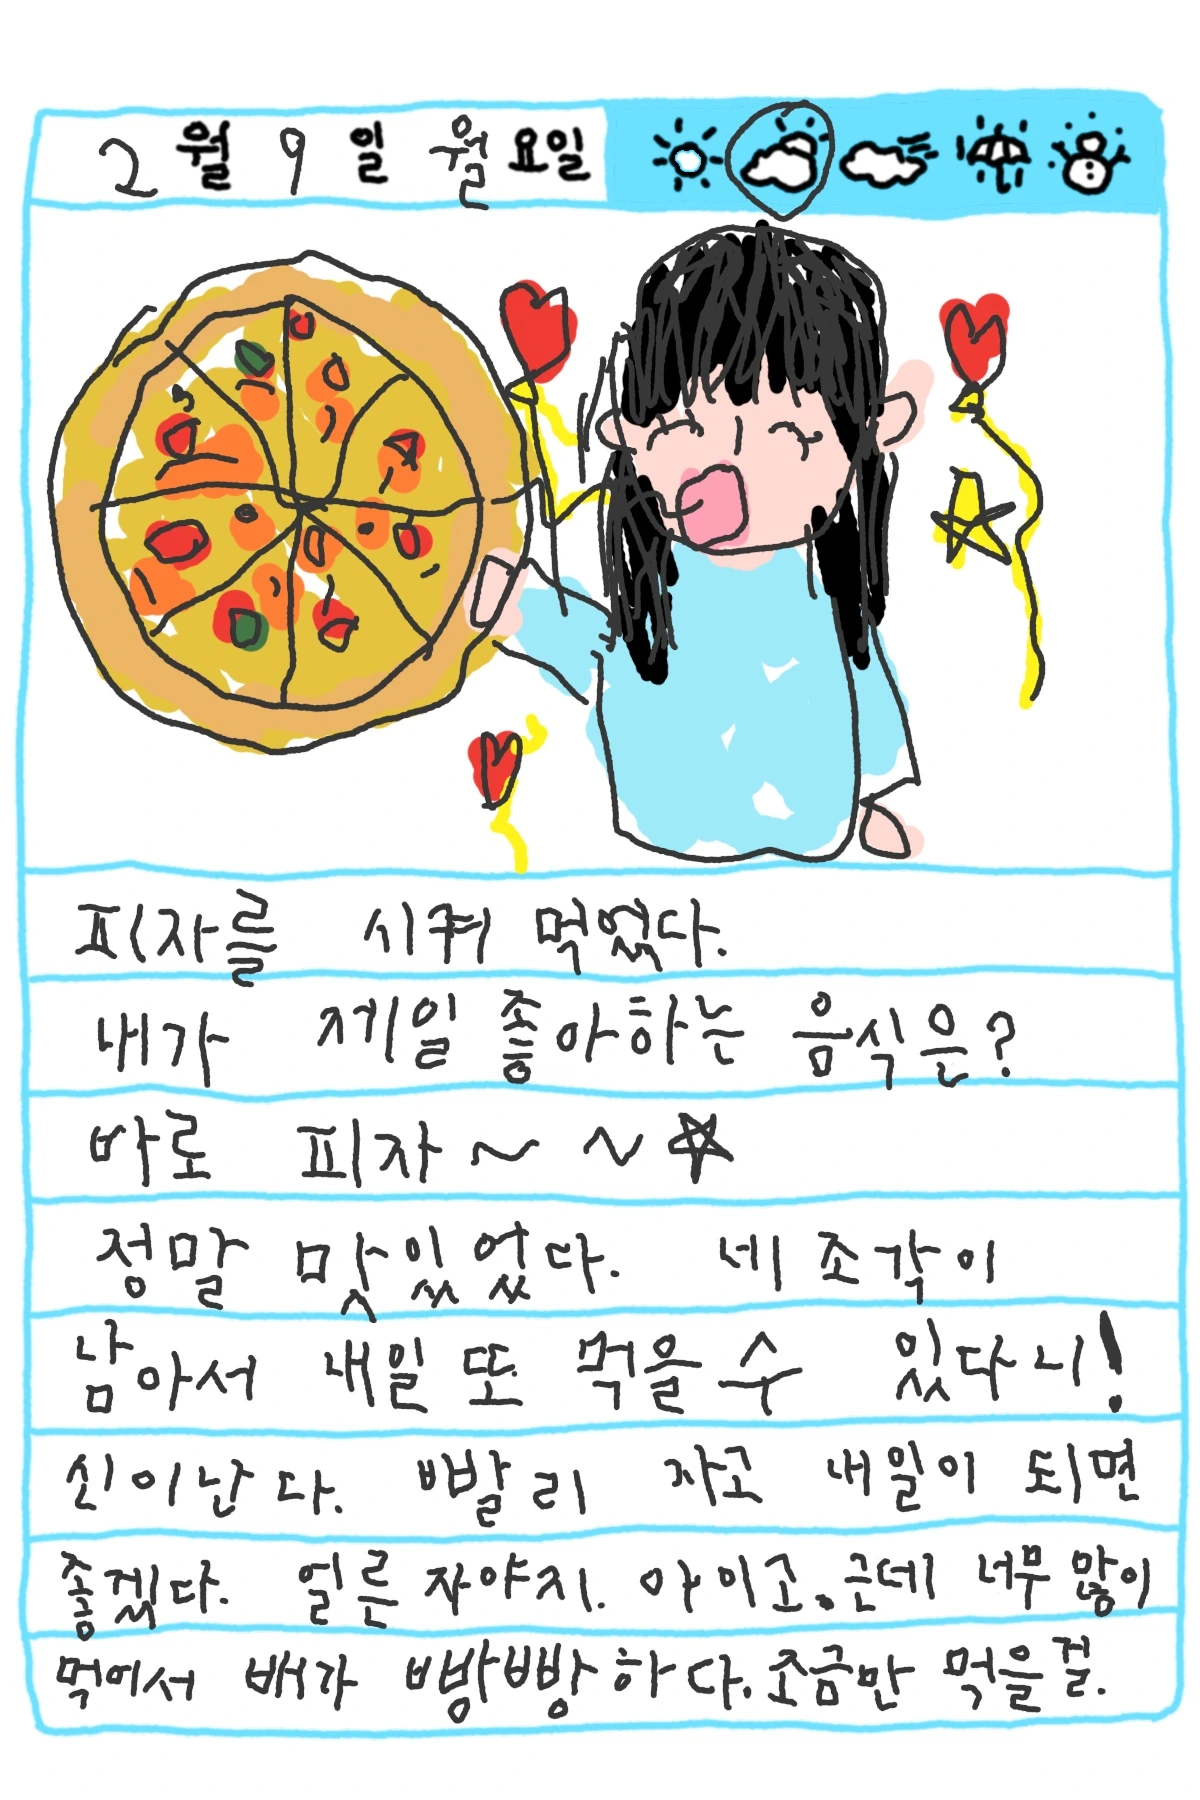 2월 9일 월요일
피자를 시켜 먹었다.
내가 제일 좋아하는 음식은?
바로 피자~ ~☆
정말 맛있었다. 네 조각이
남아서 내일 또 먹을 수 있다니!
신이난다. 빨리 자고 내일이 되면
좋겠다. 얼른 자야지. 아이고. 근데 너무 많이
먹어서 배가 빵빵하다. 조금만 먹을걸.